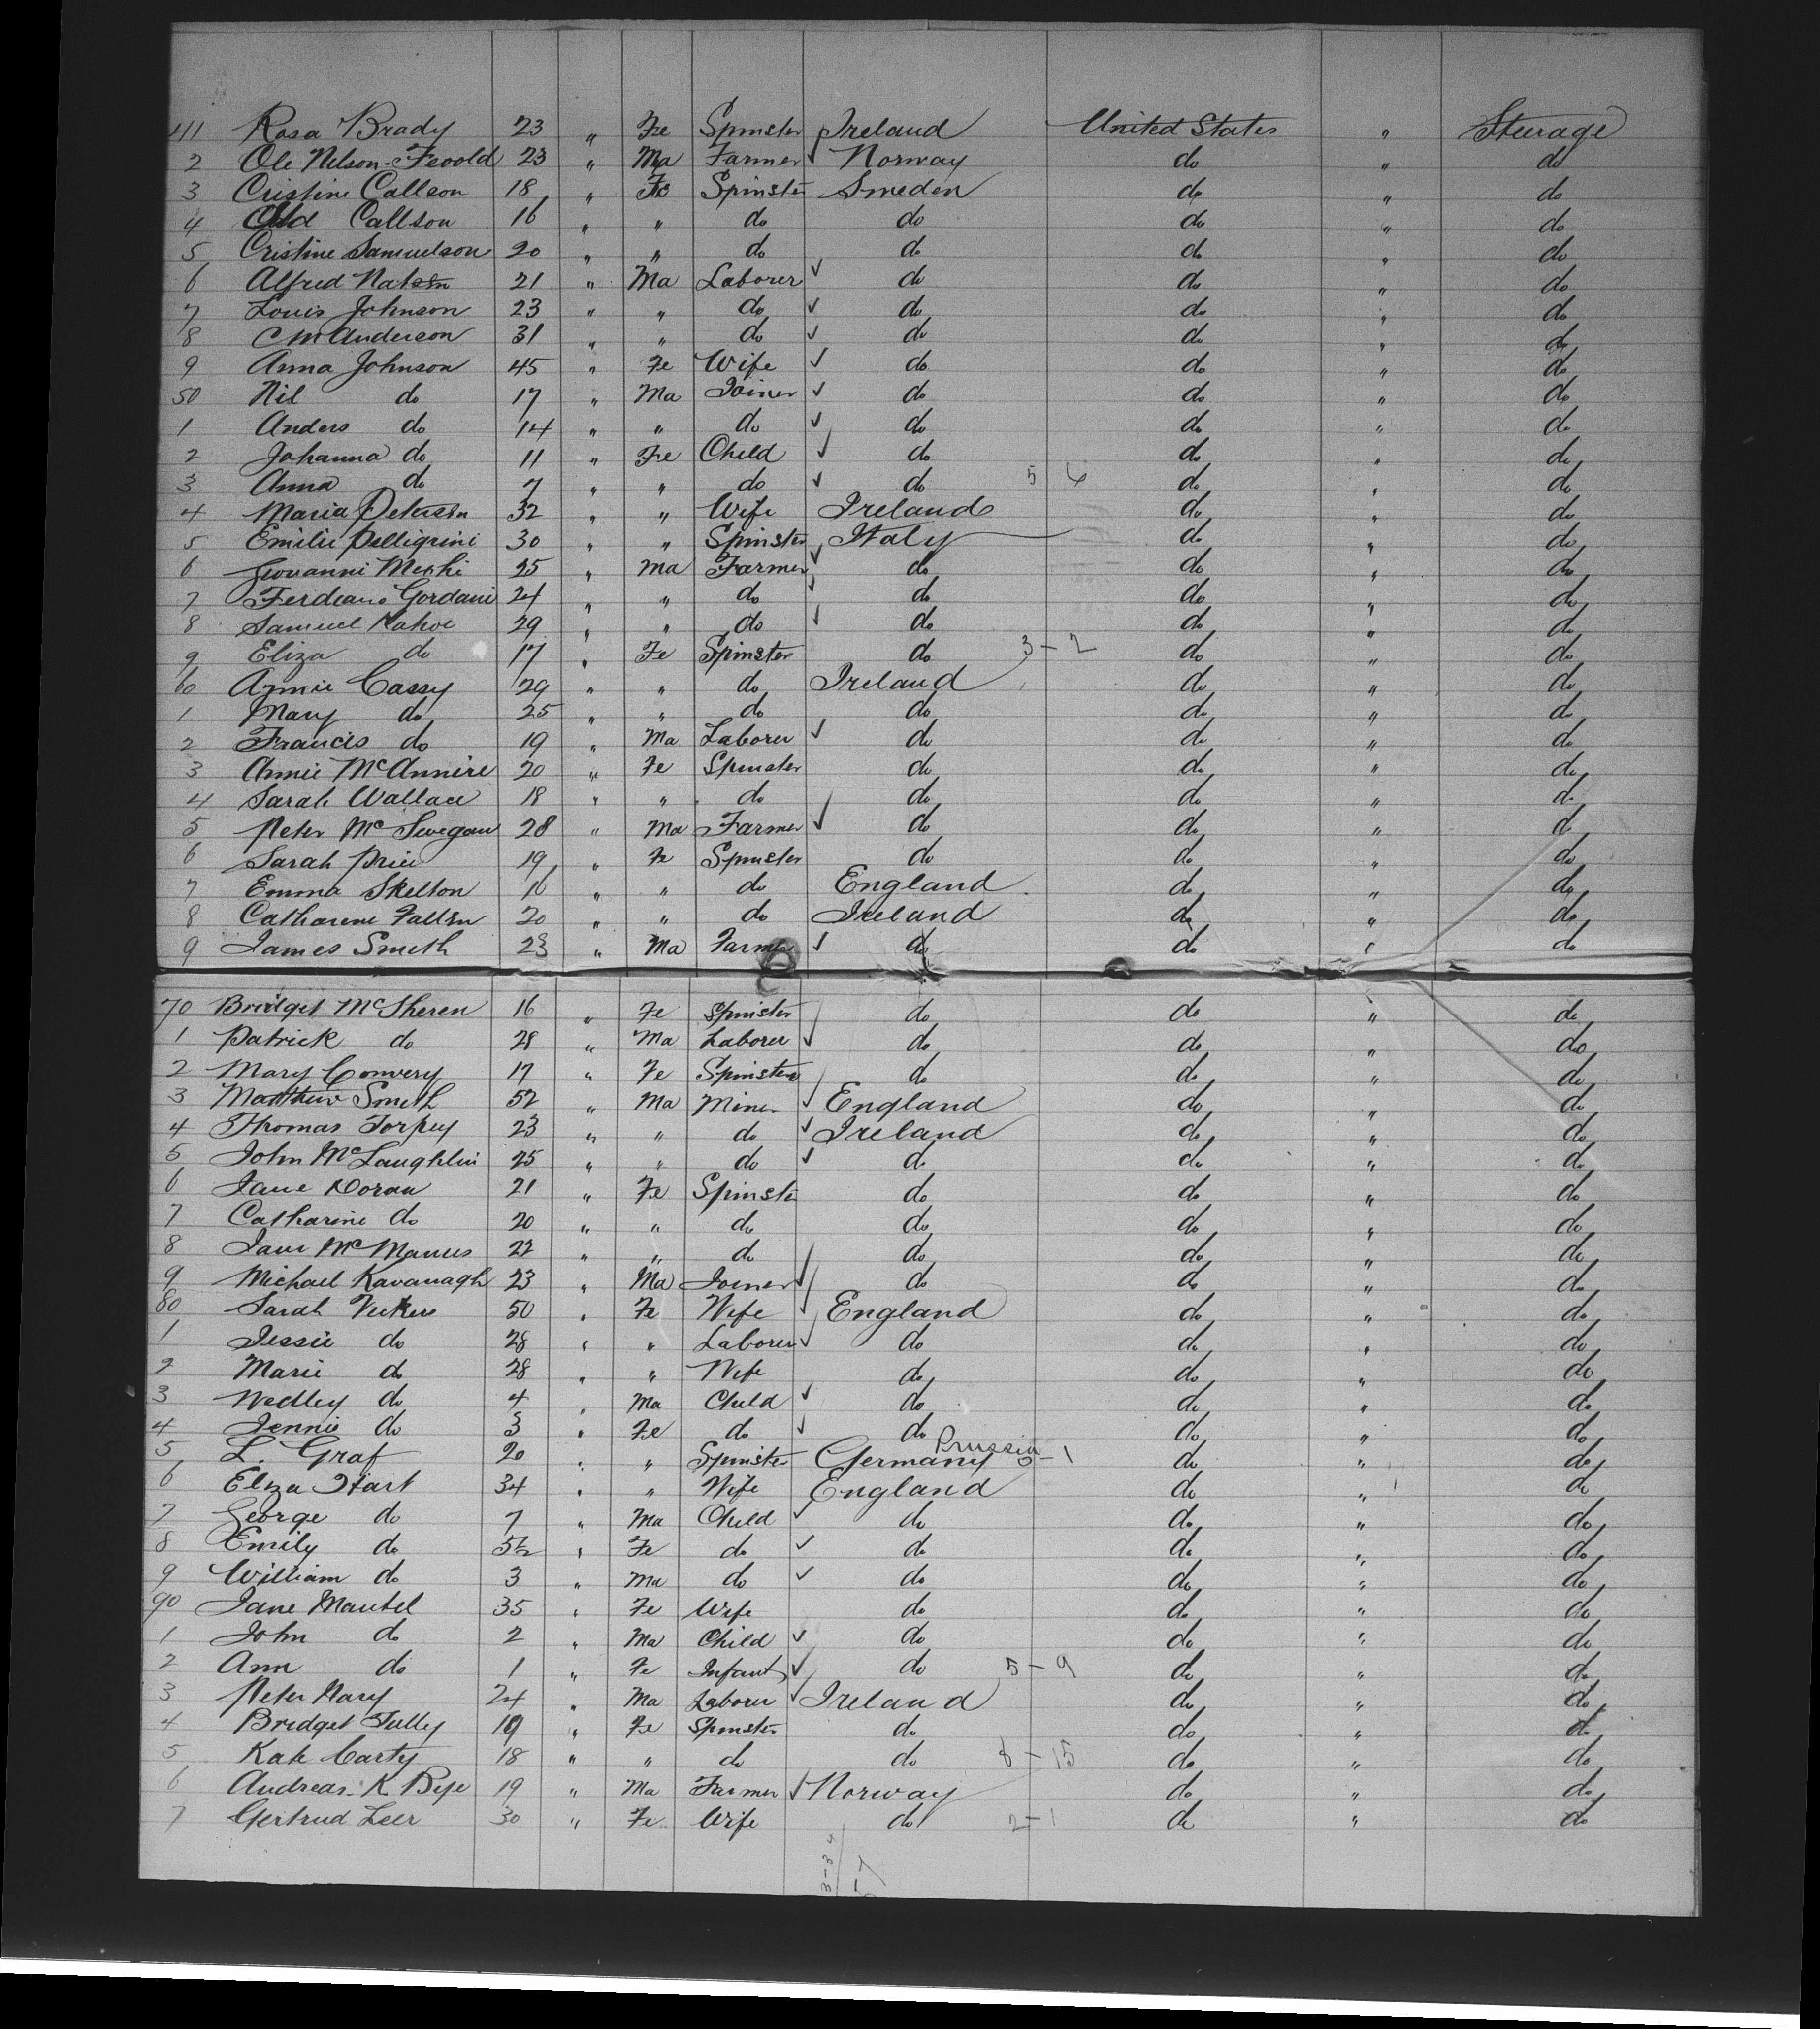 41 Rosa Brady 23 " Fe Spinster Ireland United States " Steurage
2 Ole Nelson-Fevold 23 " Ma Farmer Norway do " do
3 Cristine Callson 18 " Fe Spinster Sweden do " do
4 Callson 16 " " do do do " do
5 Cristine Samuelson 20 " " do do do " do
6 Alfred Natson 21 " Ma Laborer do do " do
7 Louis Johnson 23 " " do do do " do
8 C M Anderson 31 " " do do do " do
9 Anna Johnson 45 " Fe Wife do do " do
50 Nil do 17 " Ma Joiner do do " do
1 Anders do 14 " " do do do " do
2 Johanna do 11 " Fe Child do do " do
3 Anna do 7 " " do do 5 6 do " do
4 Maria Peterson 32 " " Wife Ireland do " do
5 Emilie Pelligrini 30 " " Spinster Italy do " do
6 Giovanni Meshi 25 " Ma Farmer do do " do
7 Gordani 24 " " do do do " do
8 Samuel Kahoe 29 " " do do do " do
9 Eliza do 17 " Fe Spinster do 3-2 do " do
60 Annie Cassy 29 " " do Ireland do " do
1 Mary do 25 " " do do do " do
2 Francis do 19 " Ma Laborer do do " do
3 Annie McAnnire 20 " Fe Spinster do do " do
4 Sarah Wallace 18 " " do do do " do
5 Peter Mc Swegan 28 " Ma Farmer do do " do
6 Sarah Price 19 " Fe Spinster do do " do
7 Emma Skelton 16 " " do England do " do
8 Catharine Fallon 20 " " do Ireland do " do
9 James Smith 23 " Ma Farmer do do " do
70 Bridget McSheren 16 " Fe Spinster do do " do
1 Patrick do 28 " Ma Laborer do do " do
2 Mary Convery 17 " Fe Spinster do do " do
3 Matthew Smith 52 " Ma Miner England do " do
4 Thomas Torpey 23 " " do Ireland do " do
5 John McLaughlin 25 " " do do do " do
6 Jane Doran 21 " Fe Spinster do do " do
7 Catharine do 20 " " do do do " do
8 Jane McManus 22 " " do do do " do
9 Michael Kavanagh 23 " Ma Joiner do do " do
80 Sarah Vickers 50 " Fe Wife England do " do
1 Jessie do 28 " " Laborer do do " do
2 Marie do 28 " " Wife do do " do
3 Wedley do 4 " Ma Child do do " do
4 Jennie do 3 " Fe do do do " do
5 L. Graf 20 " " Spinster Germany Prussia -1 do " do
6 Eliza Hart 34 " " Wife England do " do
7 George do 7 " Ma Child do do " do
8 Emily do 5½ " Fe do do do " do
9 William do 3 " Ma do do do " do
90 Jane Mantel 35 " Fe Wife do do " do
1 John do 2 " Ma Child do do " do
2 Ann do 1 " Fe Infant do 5-9 do " do
3 Peter Nary 24 " Ma Laborer Ireland do " do
4 Bridget Tully 19 " Fe Spinster do do " do
5 Kate Carty 18 " " do do 8-15 do " do
6 Andreas K Bye 19 " Ma Farmer Norway do " do
7 Gertrud Leer 30 " Fe Wife do 2-1 do " do